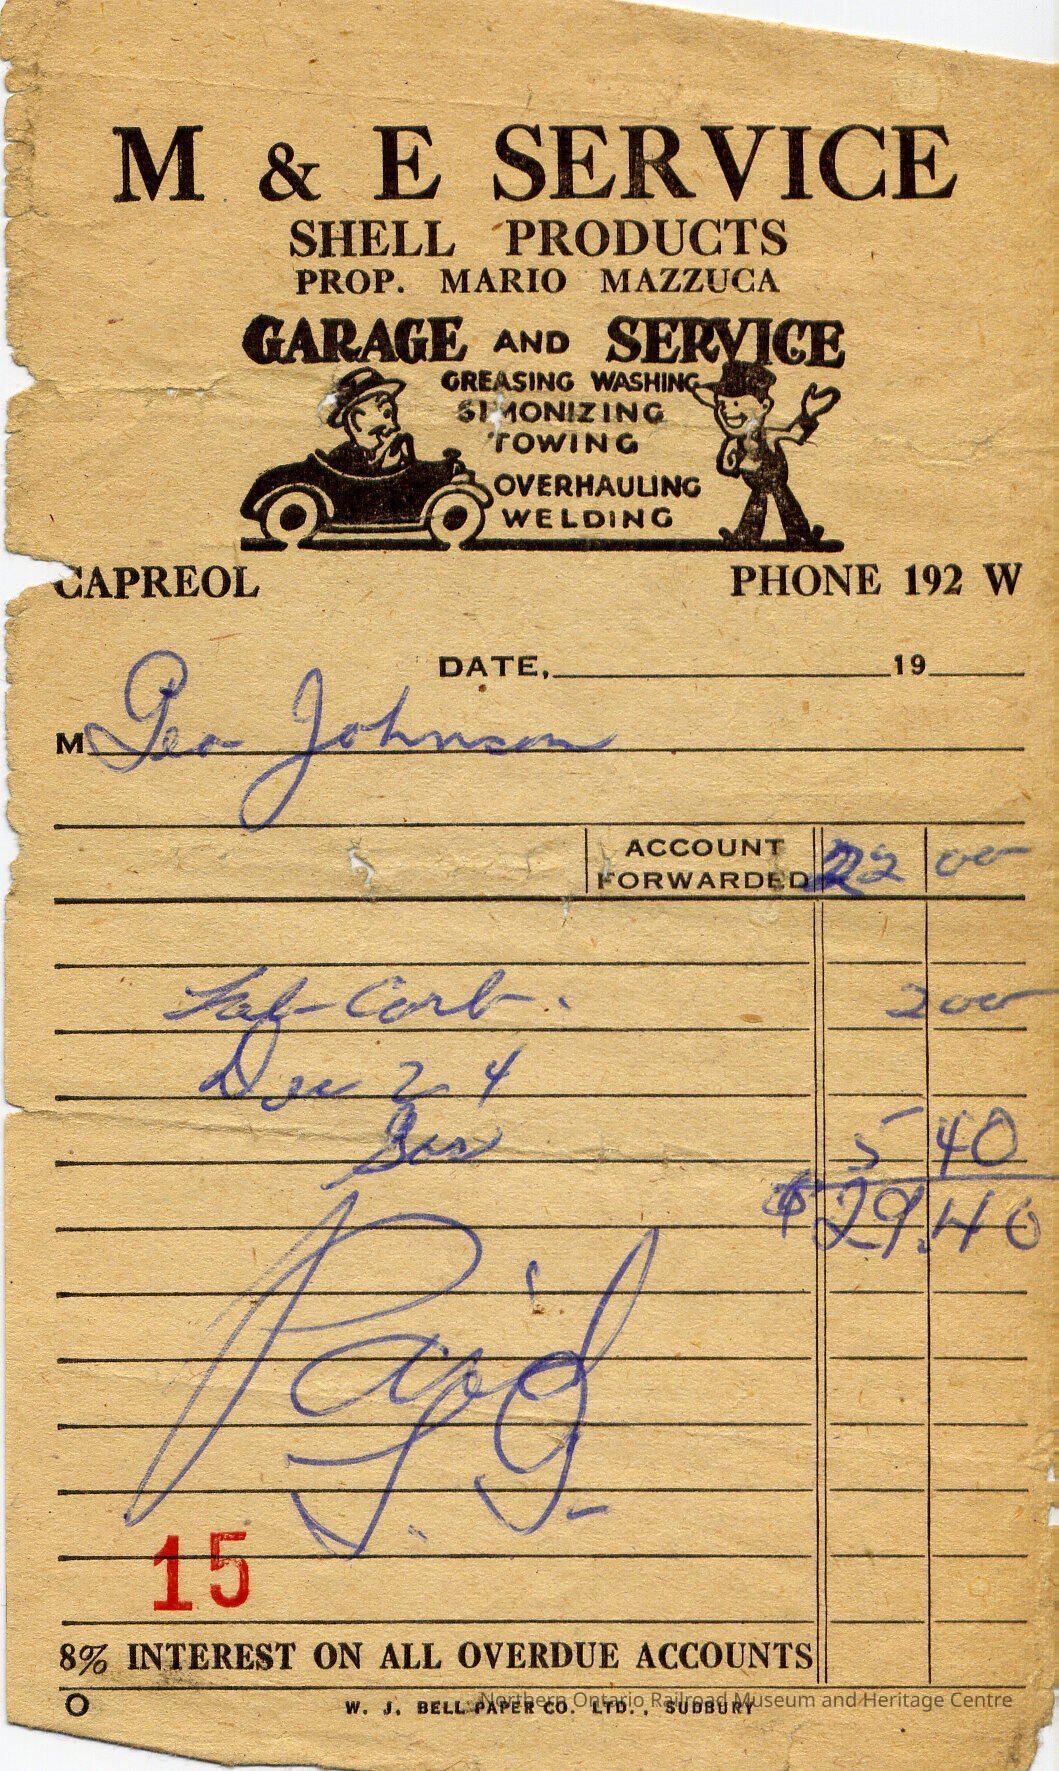 M & E SERVICE
SHELL PRODUCTS
PROP. MARIO MAZZUCA
GARAGE AND SERVICE
GREASING WASHING
SIMONIZING
TOWING
OVERHAULING
WELDING
CAPREOL PHONE 192 W
DATE, 19
M Geo Johnson
ACCOUNT FORWARDED 22 00
Carb. 2 00
Dec 24
Gas 5 40
$29.40
Paid
15
8% INTEREST ON ALL OVERDUE ACCOUNTS
O W. J. BELL PAPER CO. LTD., SUDBURY
Northern Ontario Railroad Museum and Heritage Centre